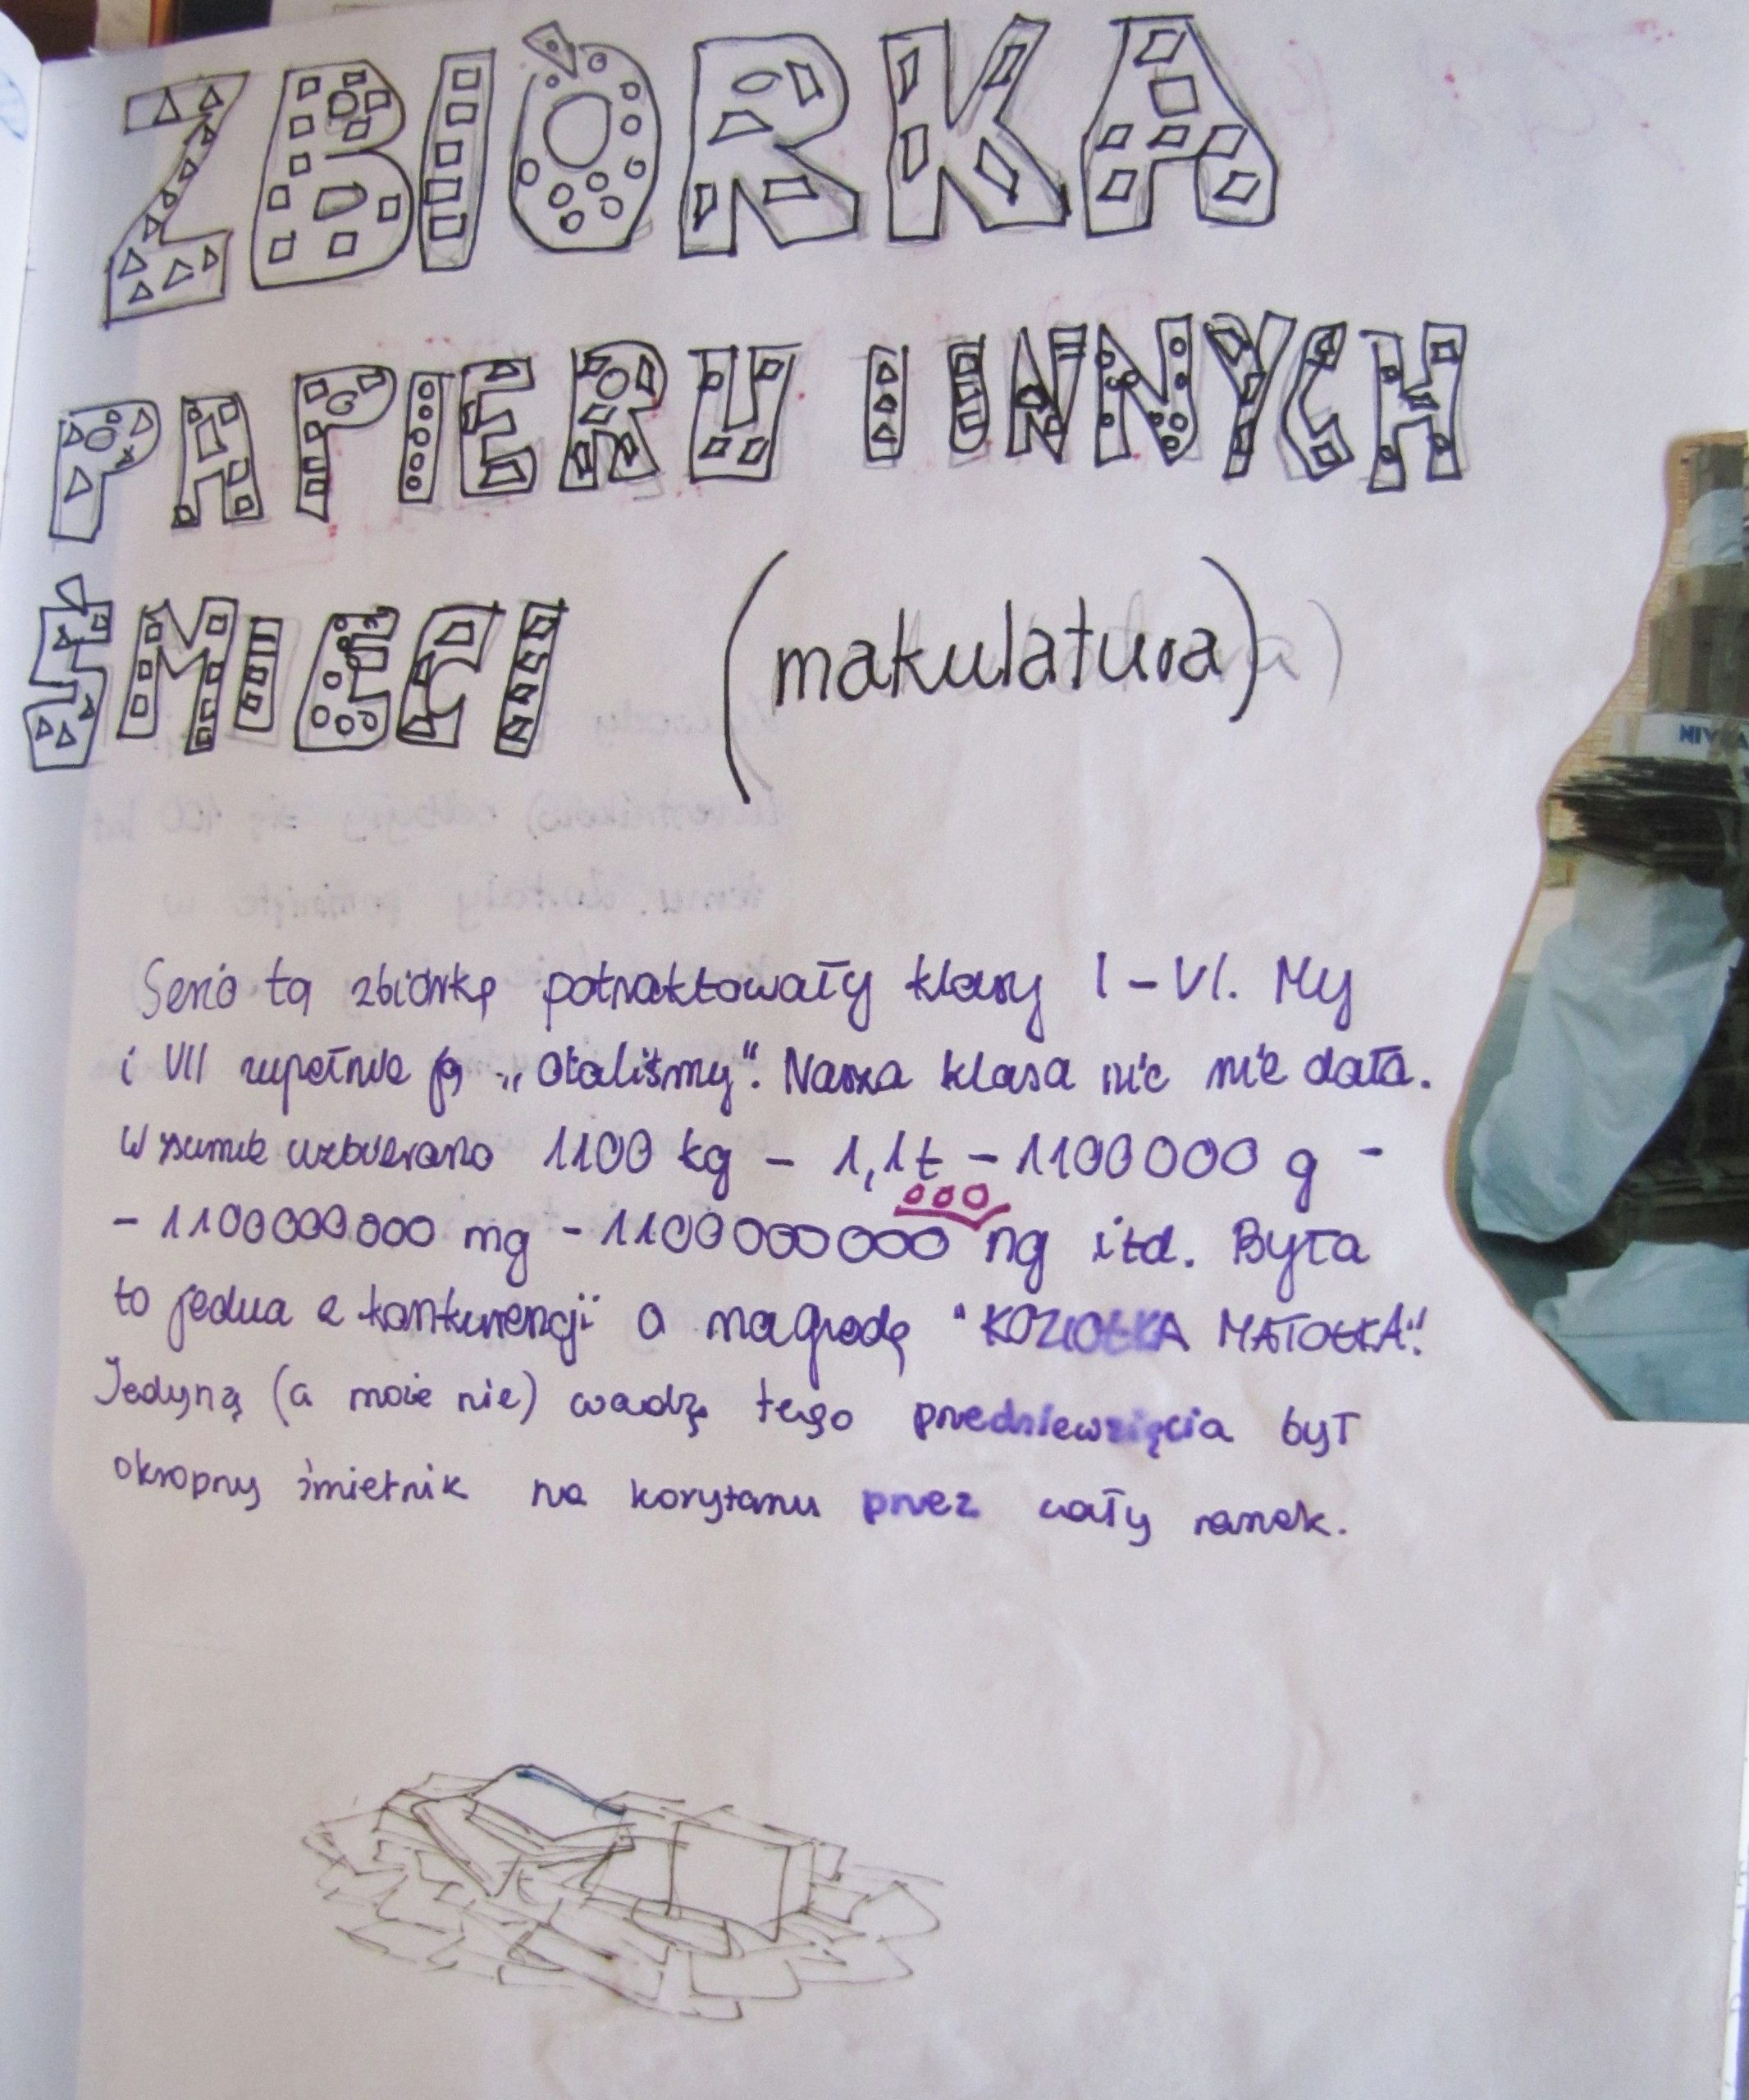 ZBIÓRKA
PAPIERU I INNYCH
ŚMIECI (makulatura)
Serio tą zbiórkę potraktowały klasy I - VI. My
i VII zupełnie ją „olaliśmy". Nasza klasa nic nie dała.
W sumie uzbierano 1100 kg - 1,1t - 1100000 g -
000
- 1100000000 mg - 1100000000 ng itd. Była
to jedna z konkurencji o nagrodę "KOZIOŁKA MATOŁKA".
Jedyną (a może nie) wadą tego przedsiewzięcia był
okropny śmietnik na korytarzu przez cały ranek.
NIVEA